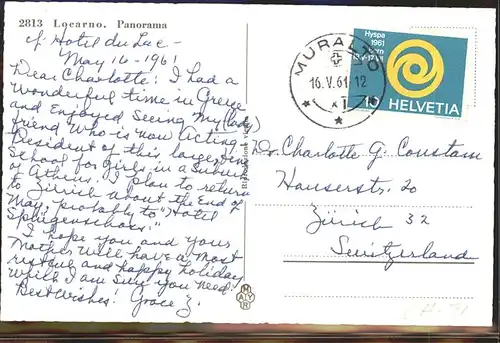 2813 Locarno. Panorama
c/o Hotel du Lac -
May, 16 - 1961
Dear Charlotte: I had a
wonderful time in Greece
and enjoyed seeing my (lady)
friend who is now Acting
President of this large
School for Girls in a Suburb
of Athens. I plan to return
to Zürich about the End of
May, probably to "Hotel
Splügenschloss."
I hope you and your
Mother will have a most
restful and happy holiday
which I am sure you need.
Best wishes! Grace Z.
MURALTO
16.V.61-12
Hyspa
1961
Bern
HELVETIA
10
Dr. Charlotte G. Constam
Hauserstr. 20
Zürich 32
Switzerland